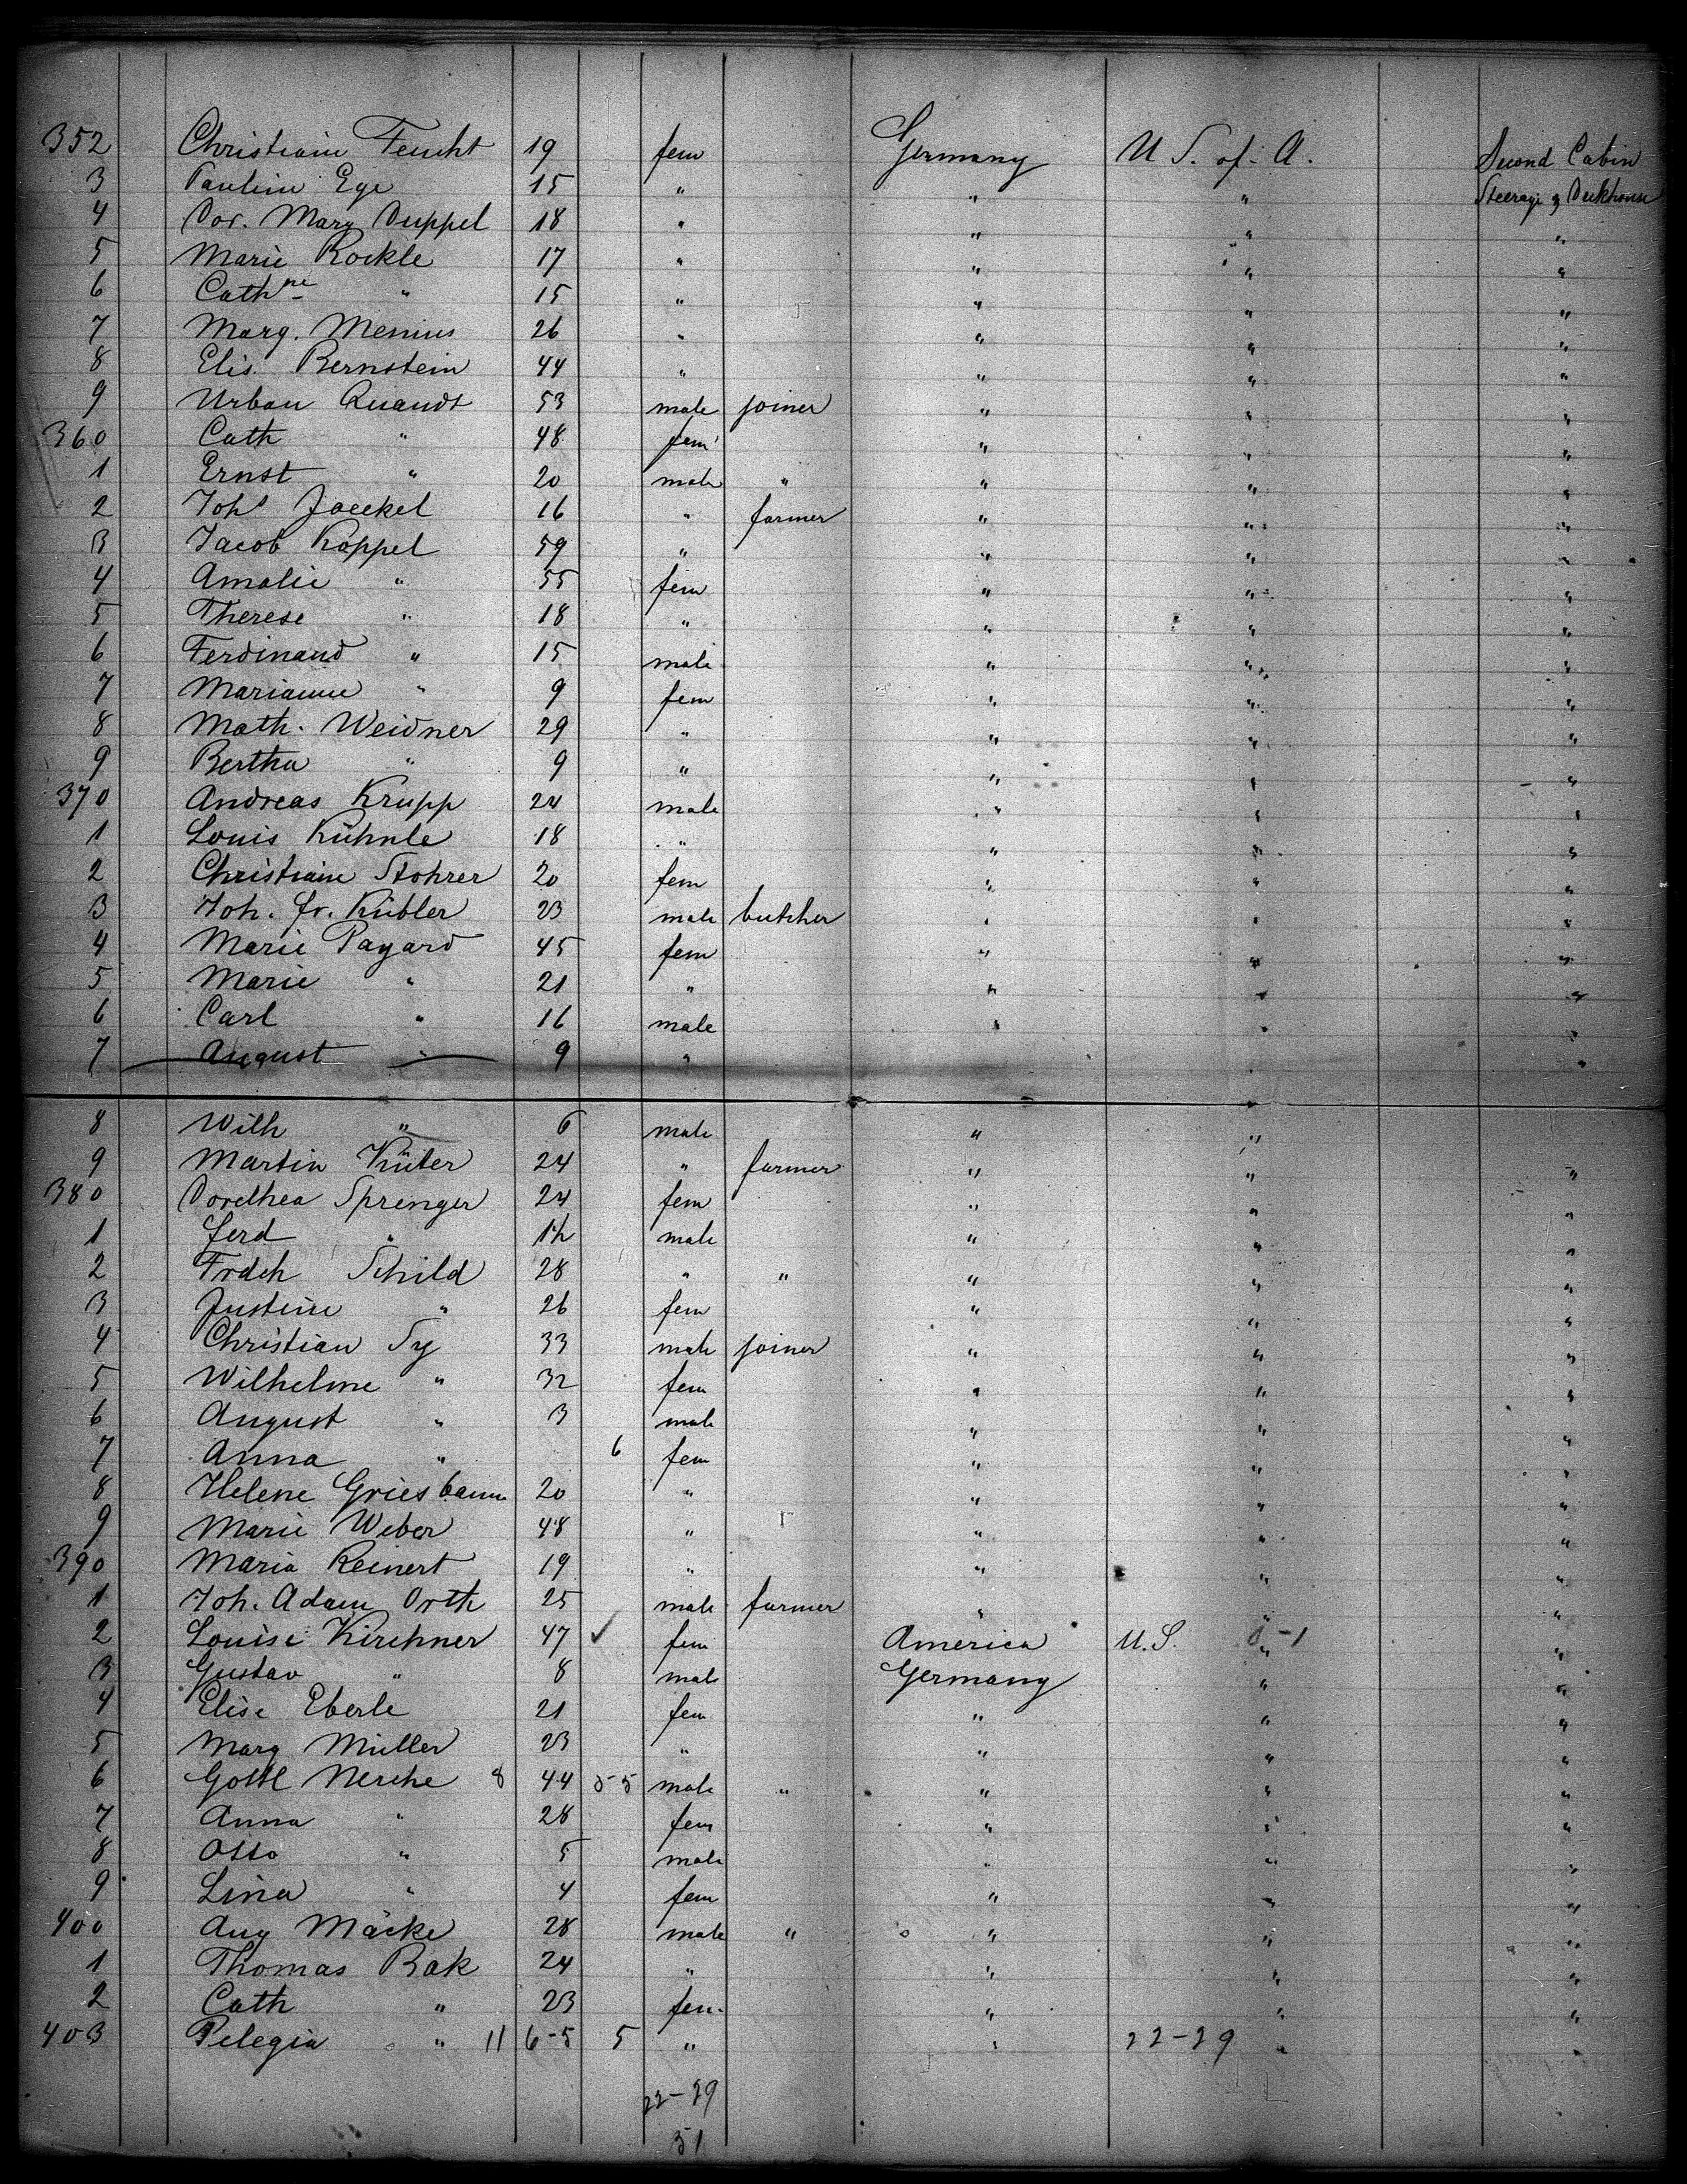 352 Christiain Feucht 19 fem Germany U S. of. A. Second Cabin
3 Paulini Ege 15 " " " Steerage & Deckhouse
4 Dor. Marg Duppel 18 " " " "
5 Marie Rockle 17 " " " "
6 Cathne " 15 " " " "
7 Marg. Menius 26 " " " "
8 Elis. Bernstein 44 " " " "
9 Urban Quandt 53 male joiner " " "
360 Cath " 48 fem " " "
1 Ernst " 20 male " " " "
2 Johs Jaeckel 16 " farmer " " "
3 Jacob Koppel 59 " " " "
4 Amalie " 55 fem " " "
5 Therese " 18 " " " "
6 Ferdinand " 15 male " " "
7 Marianne " 9 fem " " "
8 Math. Weidner 29 " " " "
9 Bertha " 9 " " " "
370 Andreas Krupp 24 male " " "
1 Louis Kühnle 18 " " " "
2 Christiain Stohrer 20 fem " " "
3 Joh. Fr. Kübler 23 male butcher " " "
4 Marie Payard 45 fem " " "
5 Marie " 21 " " " "
6 Carl " 16 male " " "
7 August " 9 " " " "
8 Wilh " 6 male " "
9 Martin Küter 24 " farmer " " "
380 Dorethea Sprenger 24 fem " " "
1 Ferd " 1½ male " " "
2 Frdch Schild 28 " " " " "
3 Justine " 26 fem " " "
4 Christian Sy 33 male joiner " " "
5 Wilhelme " 32 fem " " "
6 August " 3 male " " "
7 Anna " 6 fem " " "
8 Helene Griesbaum 20 " " " "
9 Marie Weber 48 " " " "
390 Maria Reinert 19 " " " "
1 Joh. Adam Orth 25 male farmer " " "
2 Louise Kirchner 47 ✓ fem America U.S. " "
3 Gustav " 8 male Germany " "
4 Elise Eberle 21 fem " " "
5 Marg Müller 23 " " " "
6 Gottl Nerche 8 44 5-5 male " " " "
7 Anna " 28 fem " " "
8 Otto " 5 male " " "
9 Lina " 4 fem " " "
400 Aug Mäcke 28 male " " " "
1 Thomas Bak 24 " " " "
2 Cath " 23 fem. " " "
403 Pelegia " 11 6-5 5 " " 22-29 " "
22-29
51